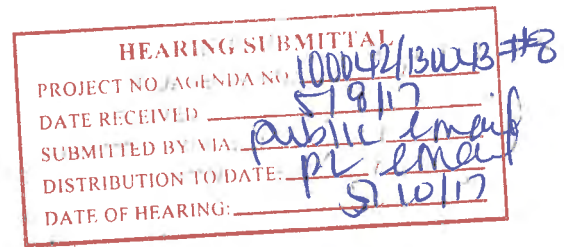 HEARING SUBMITTAL
PROJECT NO./AGENDA NO. 100042/130043 #8
DATE RECEIVED 5/9/17
SUBMITTED BY VIA: public email
DISTRIBUTION TO/DATE: PL email
DATE OF HEARING: 5/10/17